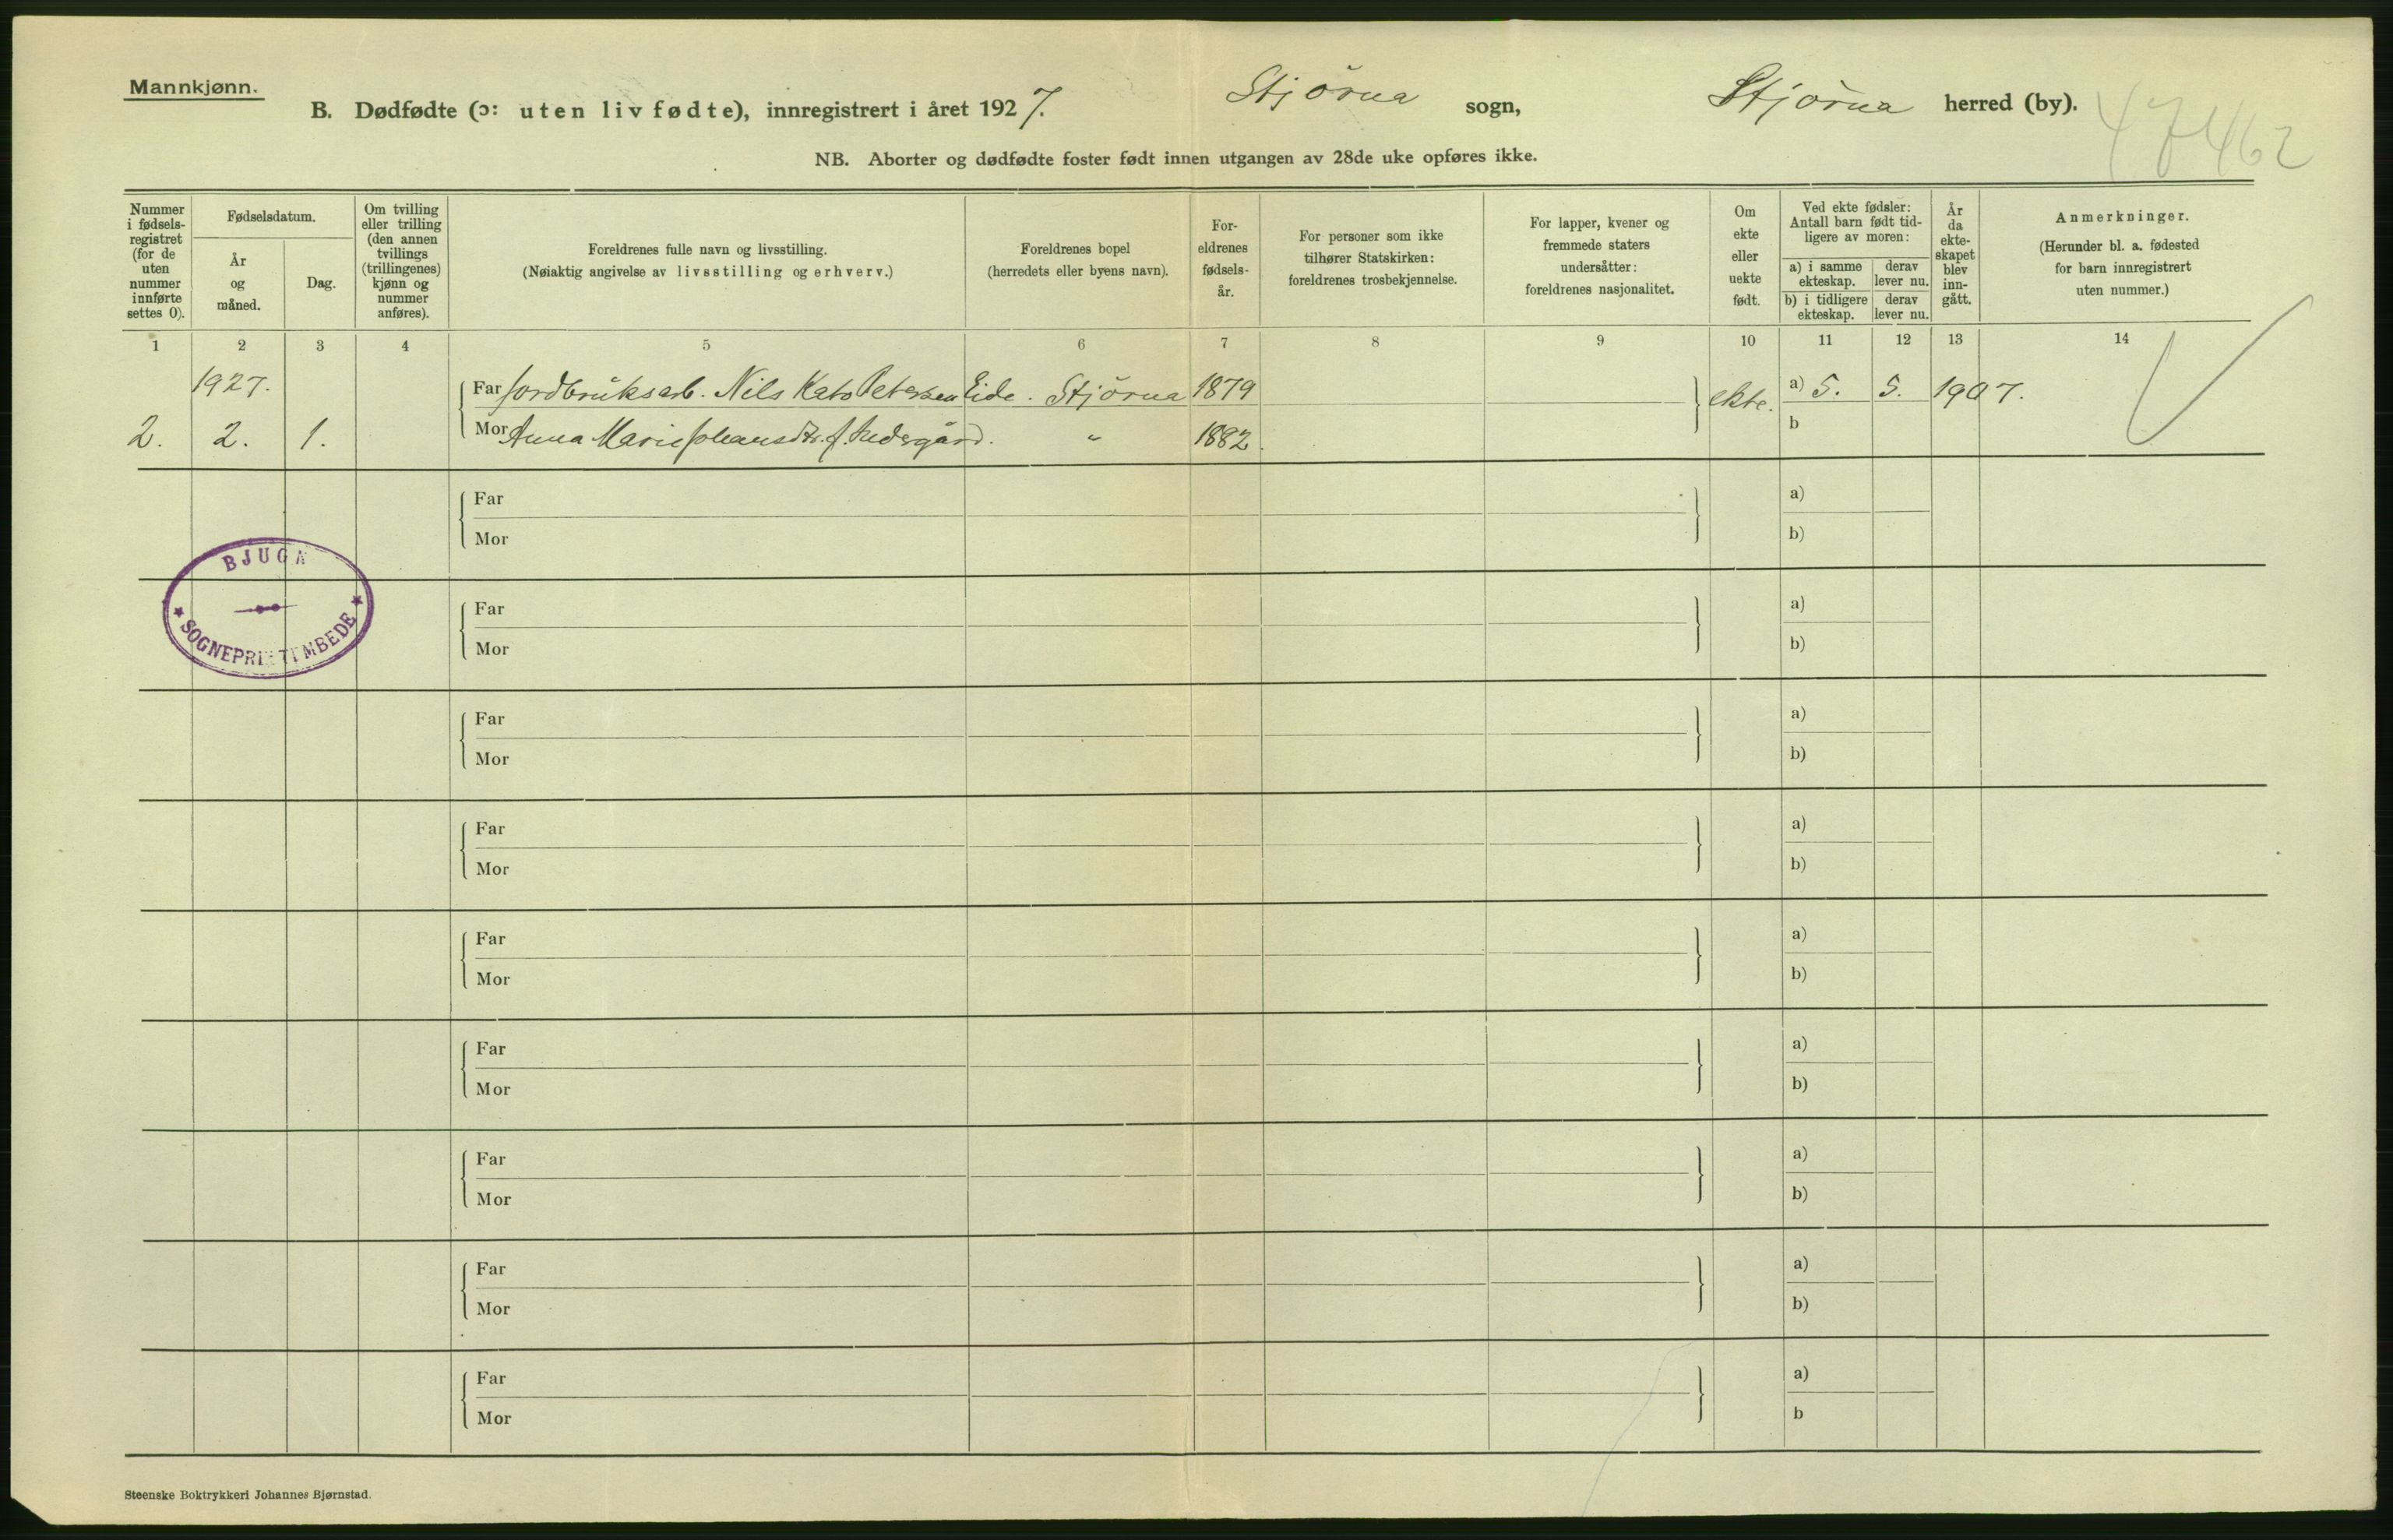 Mannkjønn.
B. Dødfødte (ɔ: uten liv fødte), innregistrert i året 1927. Stjørna sogn, Stjørna herred (by).
47462
NB. Aborter og dødfødte foster født innen utgangen av 28de uke opføres ikke.
Nummer i fødsels-registret (for de uten nummer innførte settes 0).
Fødselsdatum.
År og måned.
Dag.
Om tvilling eller trilling (den annen tvillings (trillingenes) kjønn og nummer anføres).
Foreldrenes fulle navn og livsstilling.
(Nøiaktig angivelse av livsstilling og erhverv.)
Foreldrenes bopel
(herredets eller byens navn).
For-eldrenes fødsels-år.
For personer som ikke tilhører Statskirken: foreldrenes trosbekjennelse.
For lapper, kvener og fremmede staters undersåtter: foreldrenes nasjonalitet.
Om ekte eller uekte født.
Ved ekte fødsler: Antall barn født tid-ligere av moren:
a) i samme ekteskap. derav lever nu.
b) i tidligere ekteskap. derav lever nu.
År da ekte-skapet blev inn-gått.
Anmerkninger.
(Herunder bl. a. fødested for barn innregistrert uten nummer.)
1 2 3 4 5 6 7 8 9 10 11 12 13 14
1927.
Far Jordbruksarb. Nils Kato Petersen Eide. Stjørna 1879 ekte. a) 5. 5. 1907.
2. 2. 1. Mor Anna Marie Johansdtr. f. Nedergård. " 1882. b
Far a)
Mor b)
BJUGN
SOGNEPRESTEMBEDE
Far a)
Mor b)
Far a)
Mor b)
Far a)
Mor b)
Far a)
Mor b)
Far a)
Mor b)
Far a)
Mor b)
Far a)
Mor b)
Far a)
Mor b
Steenske Boktrykkeri Johannes Bjørnstad.